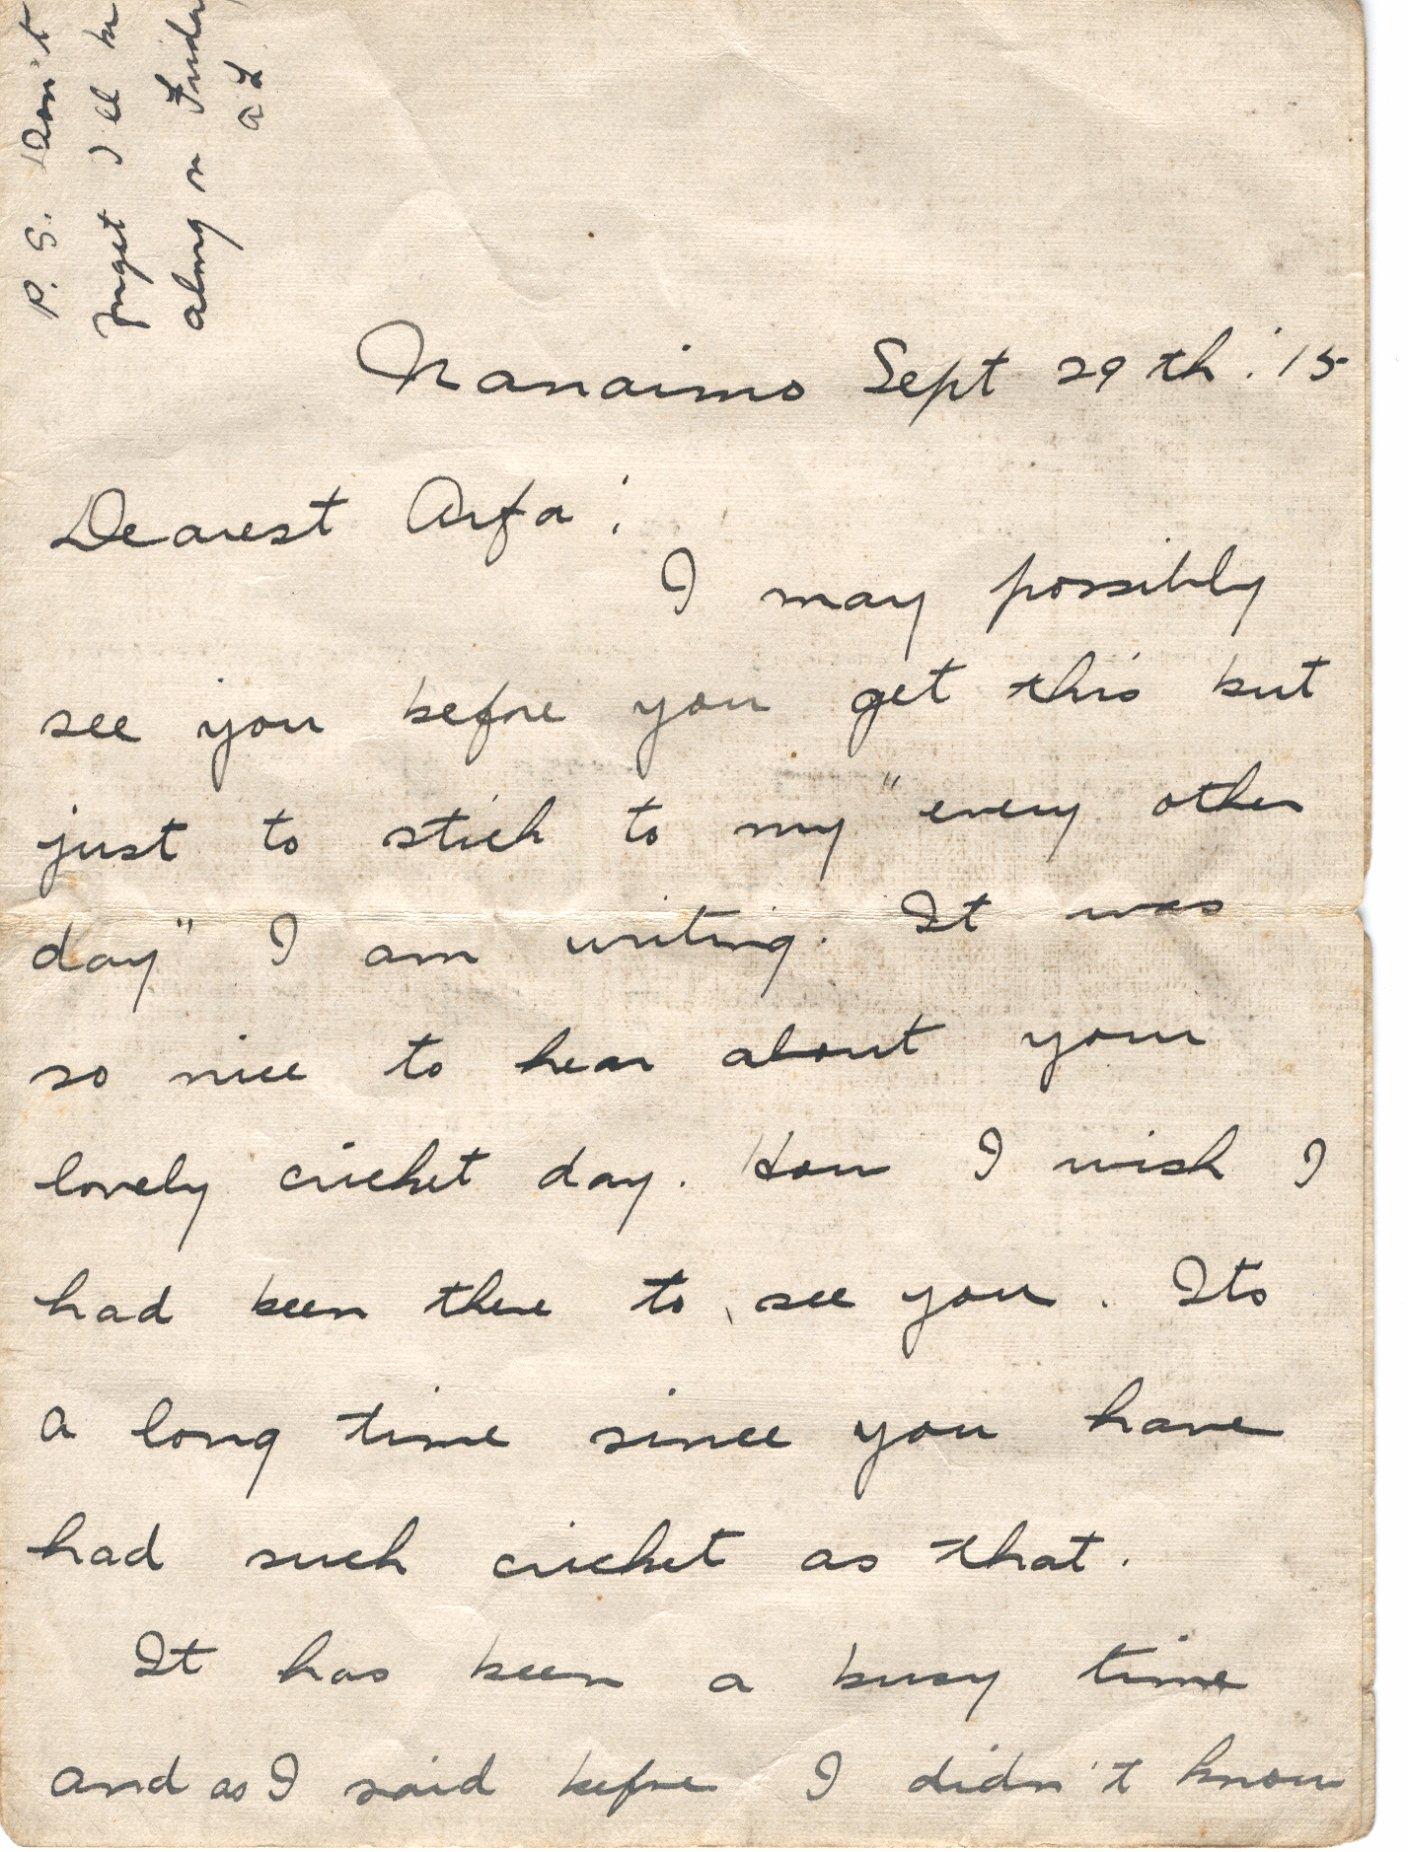 P.S. Don't
forget I'll be
along on Friday
at
Nanaimo Sept 29th '15
Dearest Arfa:
I may possibly
see you before you get this but
just to stick to my "every other
day" I am writing. It was
so nice to hear about your
lovely cricket day. How I wish I
had been there to see you. Its
a long time since you have
had such cricket as that.
It has been a busy time
and as I said before I didn't know